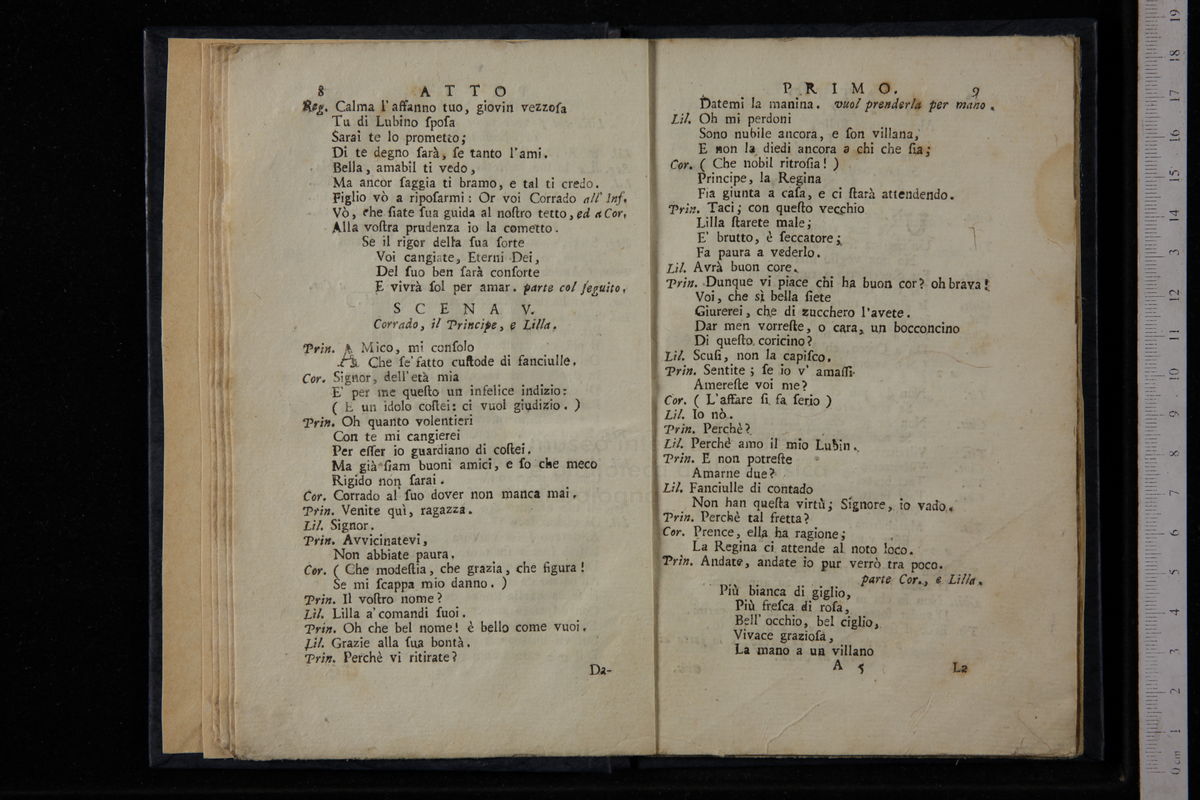 8 ATTO
Reg. Calma l'affanno tuo, giovin vezzoſa
Tu di Lubino ſpoſa
Sarai te lo prometto;
Di te degno ſarà, ſe tanto l'ami.
Bella, amabil ti vedo,
Ma ancor ſaggia ti bramo, e tal ti credo.
Figlio vò a ripoſarmi: Or voi Corrado all' Inf.
Vò, che ſiate ſua guida al noſtro tetto, ed a Cor.
Alla voſtra prudenza io la cometto.
Se il rigor della ſua ſorte
Voi cangiate, Eterni Dei,
Del ſuo ben ſarà conforte
E vivrà ſol per amar. parte col ſeguito.
SCENA V.
Corrado, il Principe, e Lilla.
Prin. A Mico, mi conſolo
Che ſe' fatto cuſtode di fanciulle.
Cor. Signor, dell'età mia
E' per me queſto un infelice indizio:
( E un idolo coſtei: ci vuol giudizio. )
Prin. Oh quanto volentieri
Con te mi cangierei
Per eſſer io guardiano di coſtei.
Ma già ſiam buoni amici, e ſo che meco
Rigido non ſarai.
Cor. Corrado al ſuo dover non manca mai.
Prin. Venite quì, ragazza.
Lil. Signor.
Prin. Avvicinatevi,
Non abbiate paura.
Cor. ( Che modeſtia, che grazia, che figura!
Se mi ſcappa mio danno. )
Prin. Il voſtro nome?
Lil. Lilla a' comandi ſuoi.
Prin. Oh che bel nome! è bello come vuoi.
Lil. Grazie alla ſua bontà.
Prin. Perchè vi ritirate?
Da-
PRIMO. 9
Datemi la manina. vuol prenderla per mano.
Lil. Oh mi perdoni
Sono nubile ancora, e ſon villana,
E non la diedi ancora a chi che ſia;
Cor. ( Che nobil ritroſia! )
Principe, la Regina
Fia giunta a caſa, e ci ſtarà attendendo.
Prin. Taci; con queſto vecchio
Lilla ſtarete male;
E' brutto, è ſeccatore;
Fa paura a vederlo.
Lil. Avrà buon core.
Prin. Dunque vi piace chi ha buon cor? oh brava!
Voi, che sì bella ſiete
Giurerei, che di zucchero l'avete.
Dar men vorreſte, o cara, un bocconcino
Di queſto coricino?
Lil. Scuſi, non la capiſco.
Prin. Sentite; ſe io v' amaſſi
Amereſte voi me?
Cor. ( L'affare ſi fa ſerio )
Lil. Io nò.
Prin. Perchè?
Lil. Perchè amo il mio Lubin.
Prin. E non potreſte
Amarne due?
Lil. Fanciulle di contado
Non han queſta virtù; Signore, io vado.
Prin. Perchè tal fretta?
Cor. Prence, ella ha ragione;
La Regina ci attende al noto loco.
Prin. Andate, andate io pur verrò tra poco.
parte Cor., e Lilla.
Più bianca di giglio,
Più freſca di roſa,
Bell' occhio, bel ciglio,
Vivace grazioſa,
La mano a un villano
A 5 La